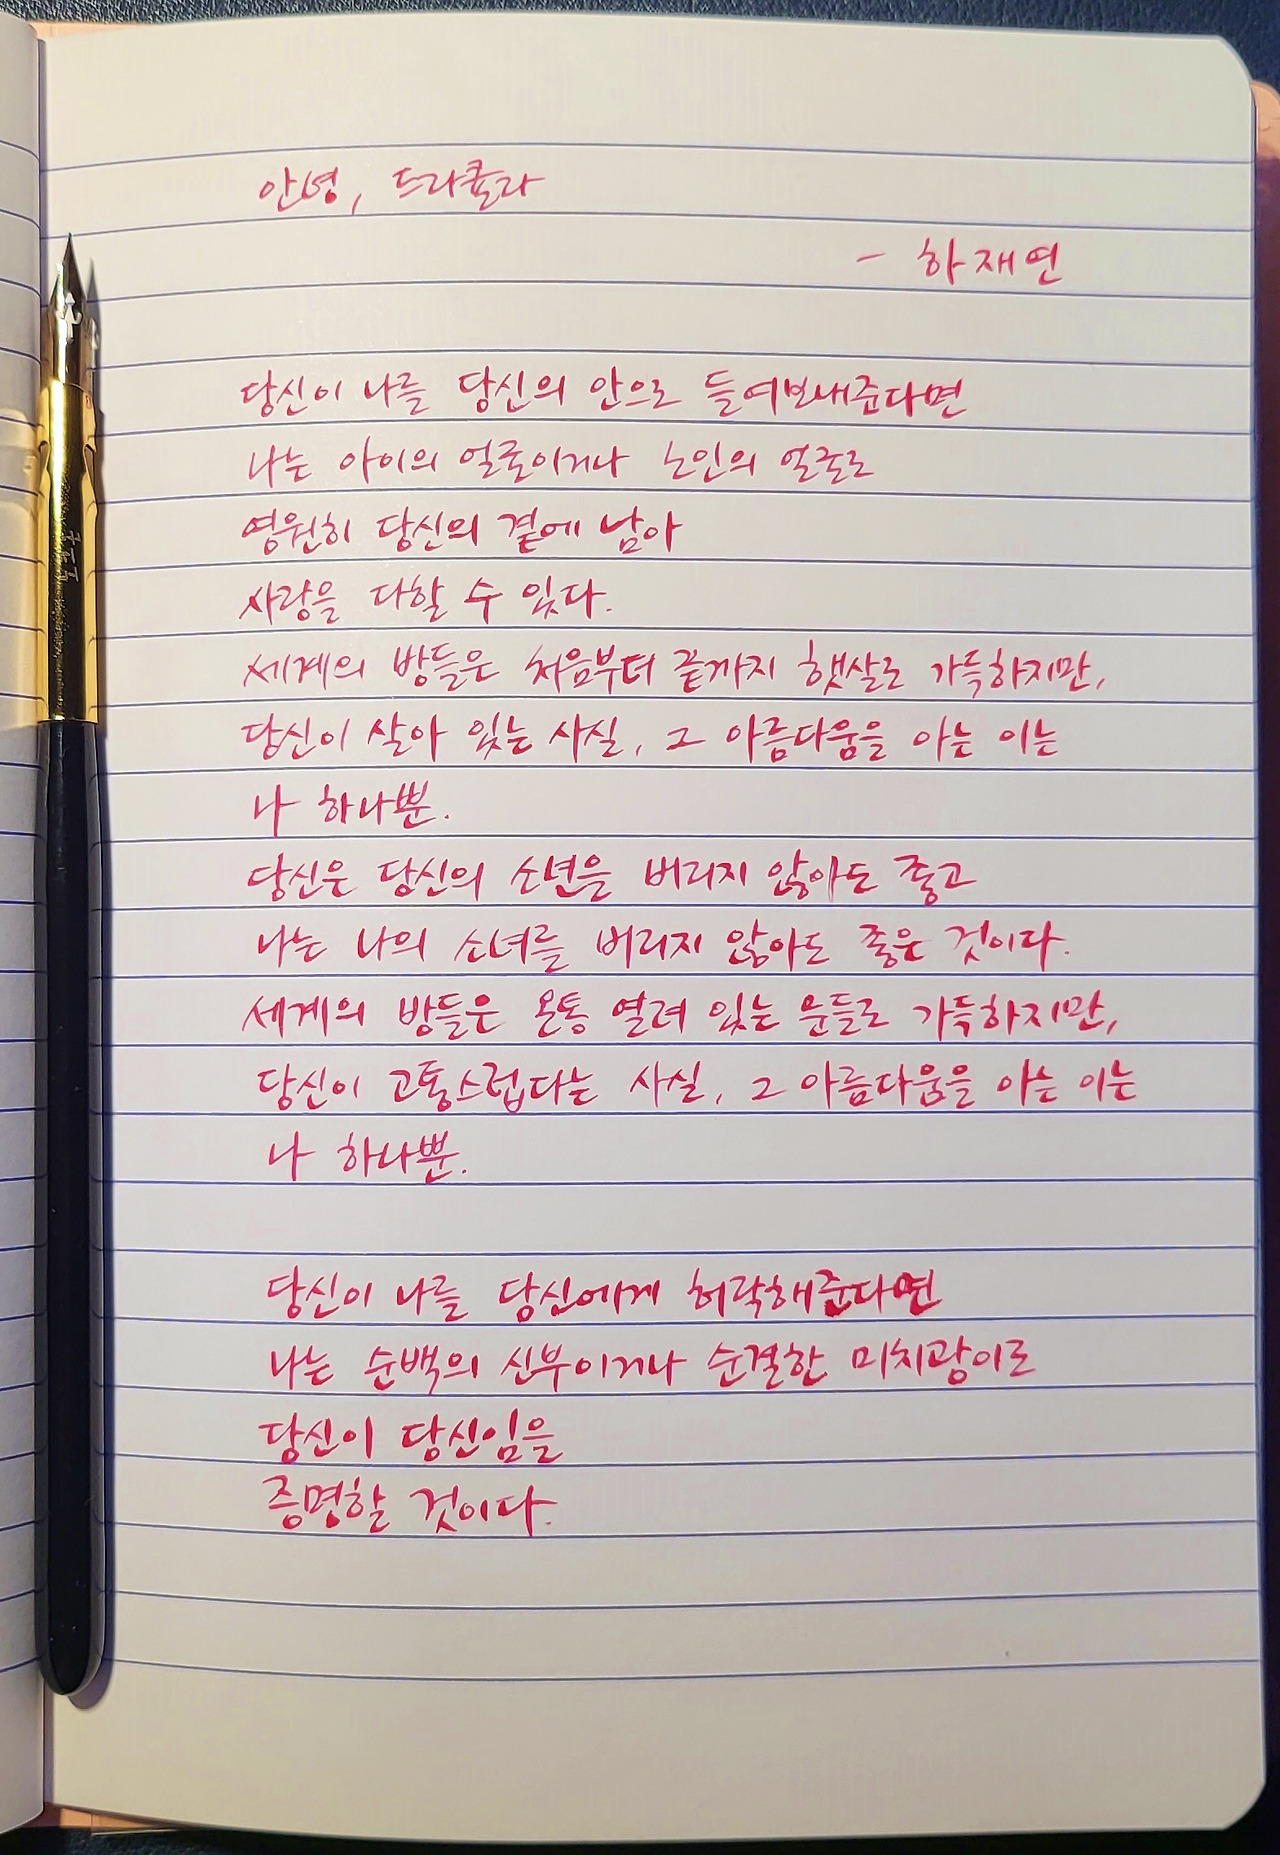 안녕, 드라큘라
- 하재연
당신이 나를 당신의 안으로 들여보내준다면
나는 아이의 얼굴이거나 노인의 얼굴로
영원히 당신의 곁에 남아
사랑을 다할 수 있다.
세계의 방들은 처음부터 끝까지 햇살로 가득하지만,
당신이 살아 있는 사실, 그 아름다움을 아는 이는
나 하나뿐.
당신은 당신의 소년을 버리지 않아도 좋고
나는 나의 소녀를 버리지 않아도 좋은 것이다.
세계의 방들은 온통 열려 있는 문들로 가득하지만,
당신이 고통스럽다는 사실, 그 아름다움을 아는 이는
나 하나뿐.
당신이 나를 당신에게 허락해준다면
나는 순백의 신부이거나 순결한 미치광이로
당신이 당신임을
증명할 것이다.